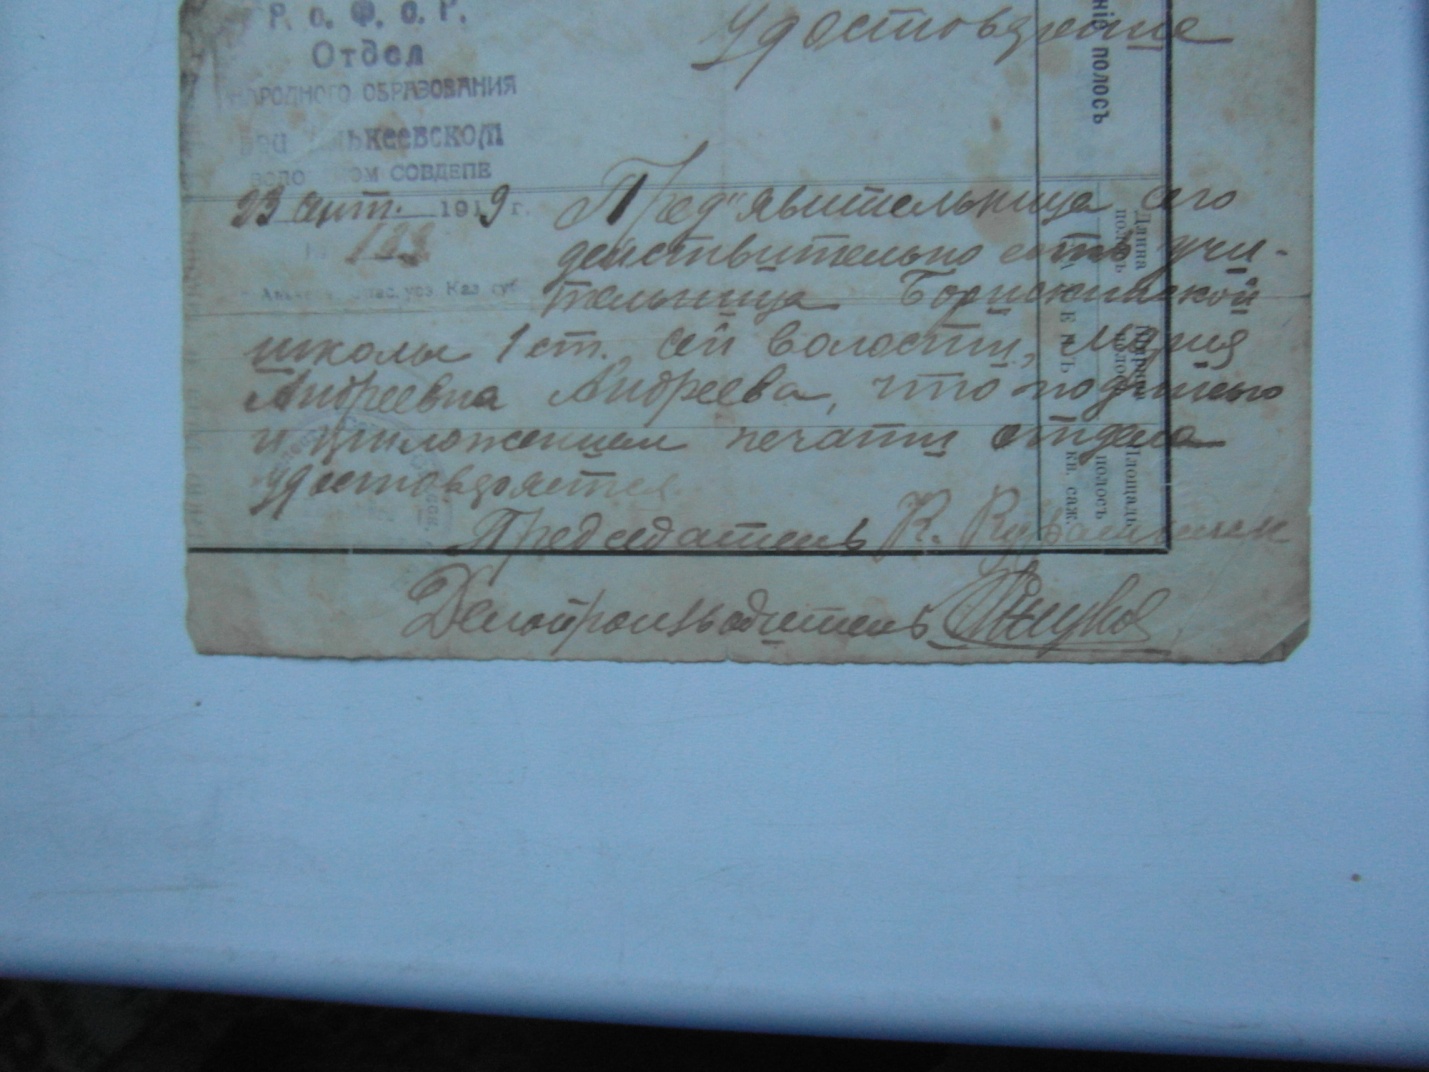 Р. С. Ф. С. Р.
Отдел
НАРОДНОГО ОБРАЗОВАНИЯ
при
СОВДЕПЕ
23 сент. 1919 г.
№ 123
Каз. губ.
Удостоверение
Пред"явительница сего
действительно есть учи-
тельница Борискинской
школы 1 ст. сей волости, Мария
Андреевна Андреева, что подписью
и приложением печати отдела
удостоверяется.
Председатель К.
Делопроизводитель
ній полосъ
Длина полосъ
Ширина полосъ
Площадь полосъ
кв. саж.